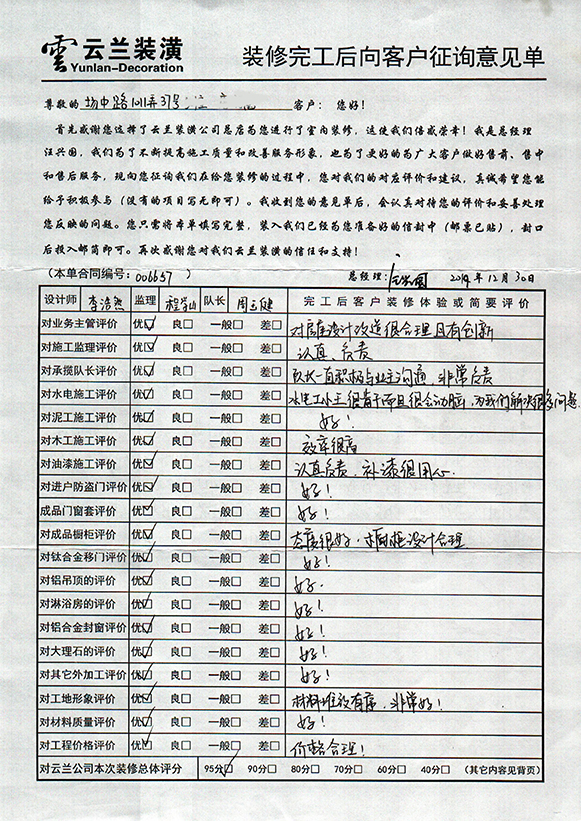 雲 云兰装潢
Yunlan-Decoration
装修完工后向客户征询意见单
尊敬的 场中路1011弄37号 客户： 您好！
首先感谢您选择了云兰装潢公司总店为您进行了室内装修，这使我们倍感荣幸！我是总经理
汪兴国，我们为了不断提高施工质量和改善服务形象，也为了更好的为广大客户做好售前、售中
和售后服务，现向您征询我们在给您装修的过程中，您对我们的对应评价和建议，真诚希望您能
给予积极参与（没有的项目写无即可）。我收到您的意见单后，会认真对待您的评价和妥善处理
您反映的问题。您只需将本单填写完整，装入我们已经为您准备好的信封中（邮票已贴），封口
后投入邮筒即可。再次感谢您对我们云兰装潢的信任和支持！
（本单合同编号：006657 ） 总经理： 汪兴国 2019年12月30日
设计师 李浩然 监理 程學山 队长 周玉健 完工后客户装修体验或简要评价
对业务主管评价 优☑ 良□ 一般□ 差□ 对房屋设计改造很合理且有创新
对施工监理评价 优☑ 良□ 一般□ 差□ 认真、负责
对承揽队长评价 优☑ 良□ 一般□ 差□ 队长一直积极与业主沟通、非常负责
对水电施工评价 优☑ 良□ 一般□ 差□ 水电工小王很肯干而且很会动脑，为我们解决很多问题
对泥工施工评价 优☑ 良□ 一般□ 差□ 好！
对木工施工评价 优☑ 良□ 一般□ 差□ 效率很高
对油漆施工评价 优☑ 良□ 一般□ 差□ 认真负责、补漆很用心.
对进户防盗门评价 优☑ 良□ 一般□ 差□ 好！
成品门窗套评价 优☑ 良□ 一般□ 差□ 好！
对成品橱柜评价 优☑ 良□ 一般□ 差□ 态度很好. 橱柜设计合理
对钛合金移门评价 优☑ 良□ 一般□ 差□ 好！
对铝吊顶的评价 优☑ 良□ 一般□ 差□ 好.
对淋浴房的评价 优☑ 良□ 一般□ 差□ 好！
对铝合金封窗评价 优☑ 良□ 一般□ 差□ 好！
对大理石的评价 优☑ 良□ 一般□ 差□ 好！
对其它外加工评价 优☑ 良□ 一般□ 差□ 好！
对工地形象评价 优☑ 良□ 一般□ 差□ 材料堆放有序，非常好！
对材料质量评价 优☑ 良□ 一般□ 差□ 好！
对工程价格评价 优☑ 良□ 一般□ 差□ 价格合理！
对云兰公司本次装修总体评分 95分☑ 90分□ 80分□ 70分□ 60分□ 40分□ （其它内容见背页）